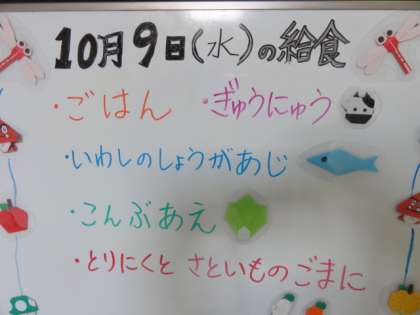 10月9日(水)の給食
・ごはん ・ぎゅうにゅう
・いわしのしょうがあじ
・こんぶあえ
・とりにくと さといものごまに